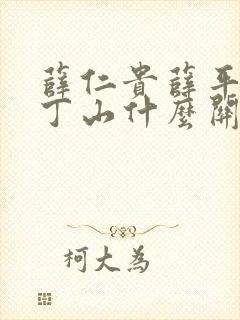 薛仁貴薛平
丁山什麼關
柯大為